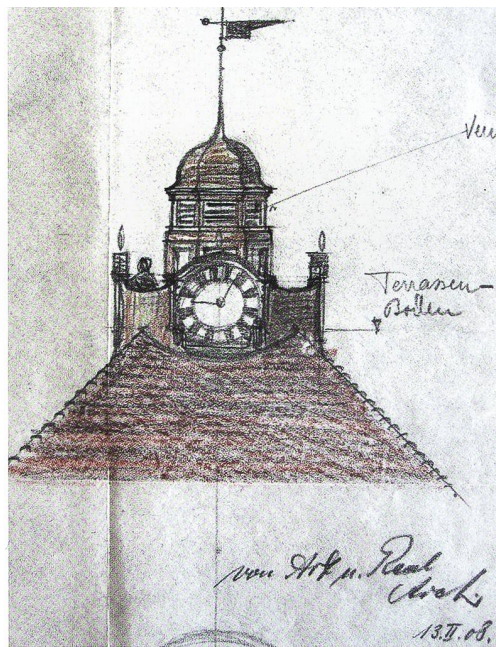 Terrassen-
Boden
von Arx u. Real
Arch.
13.II.08.